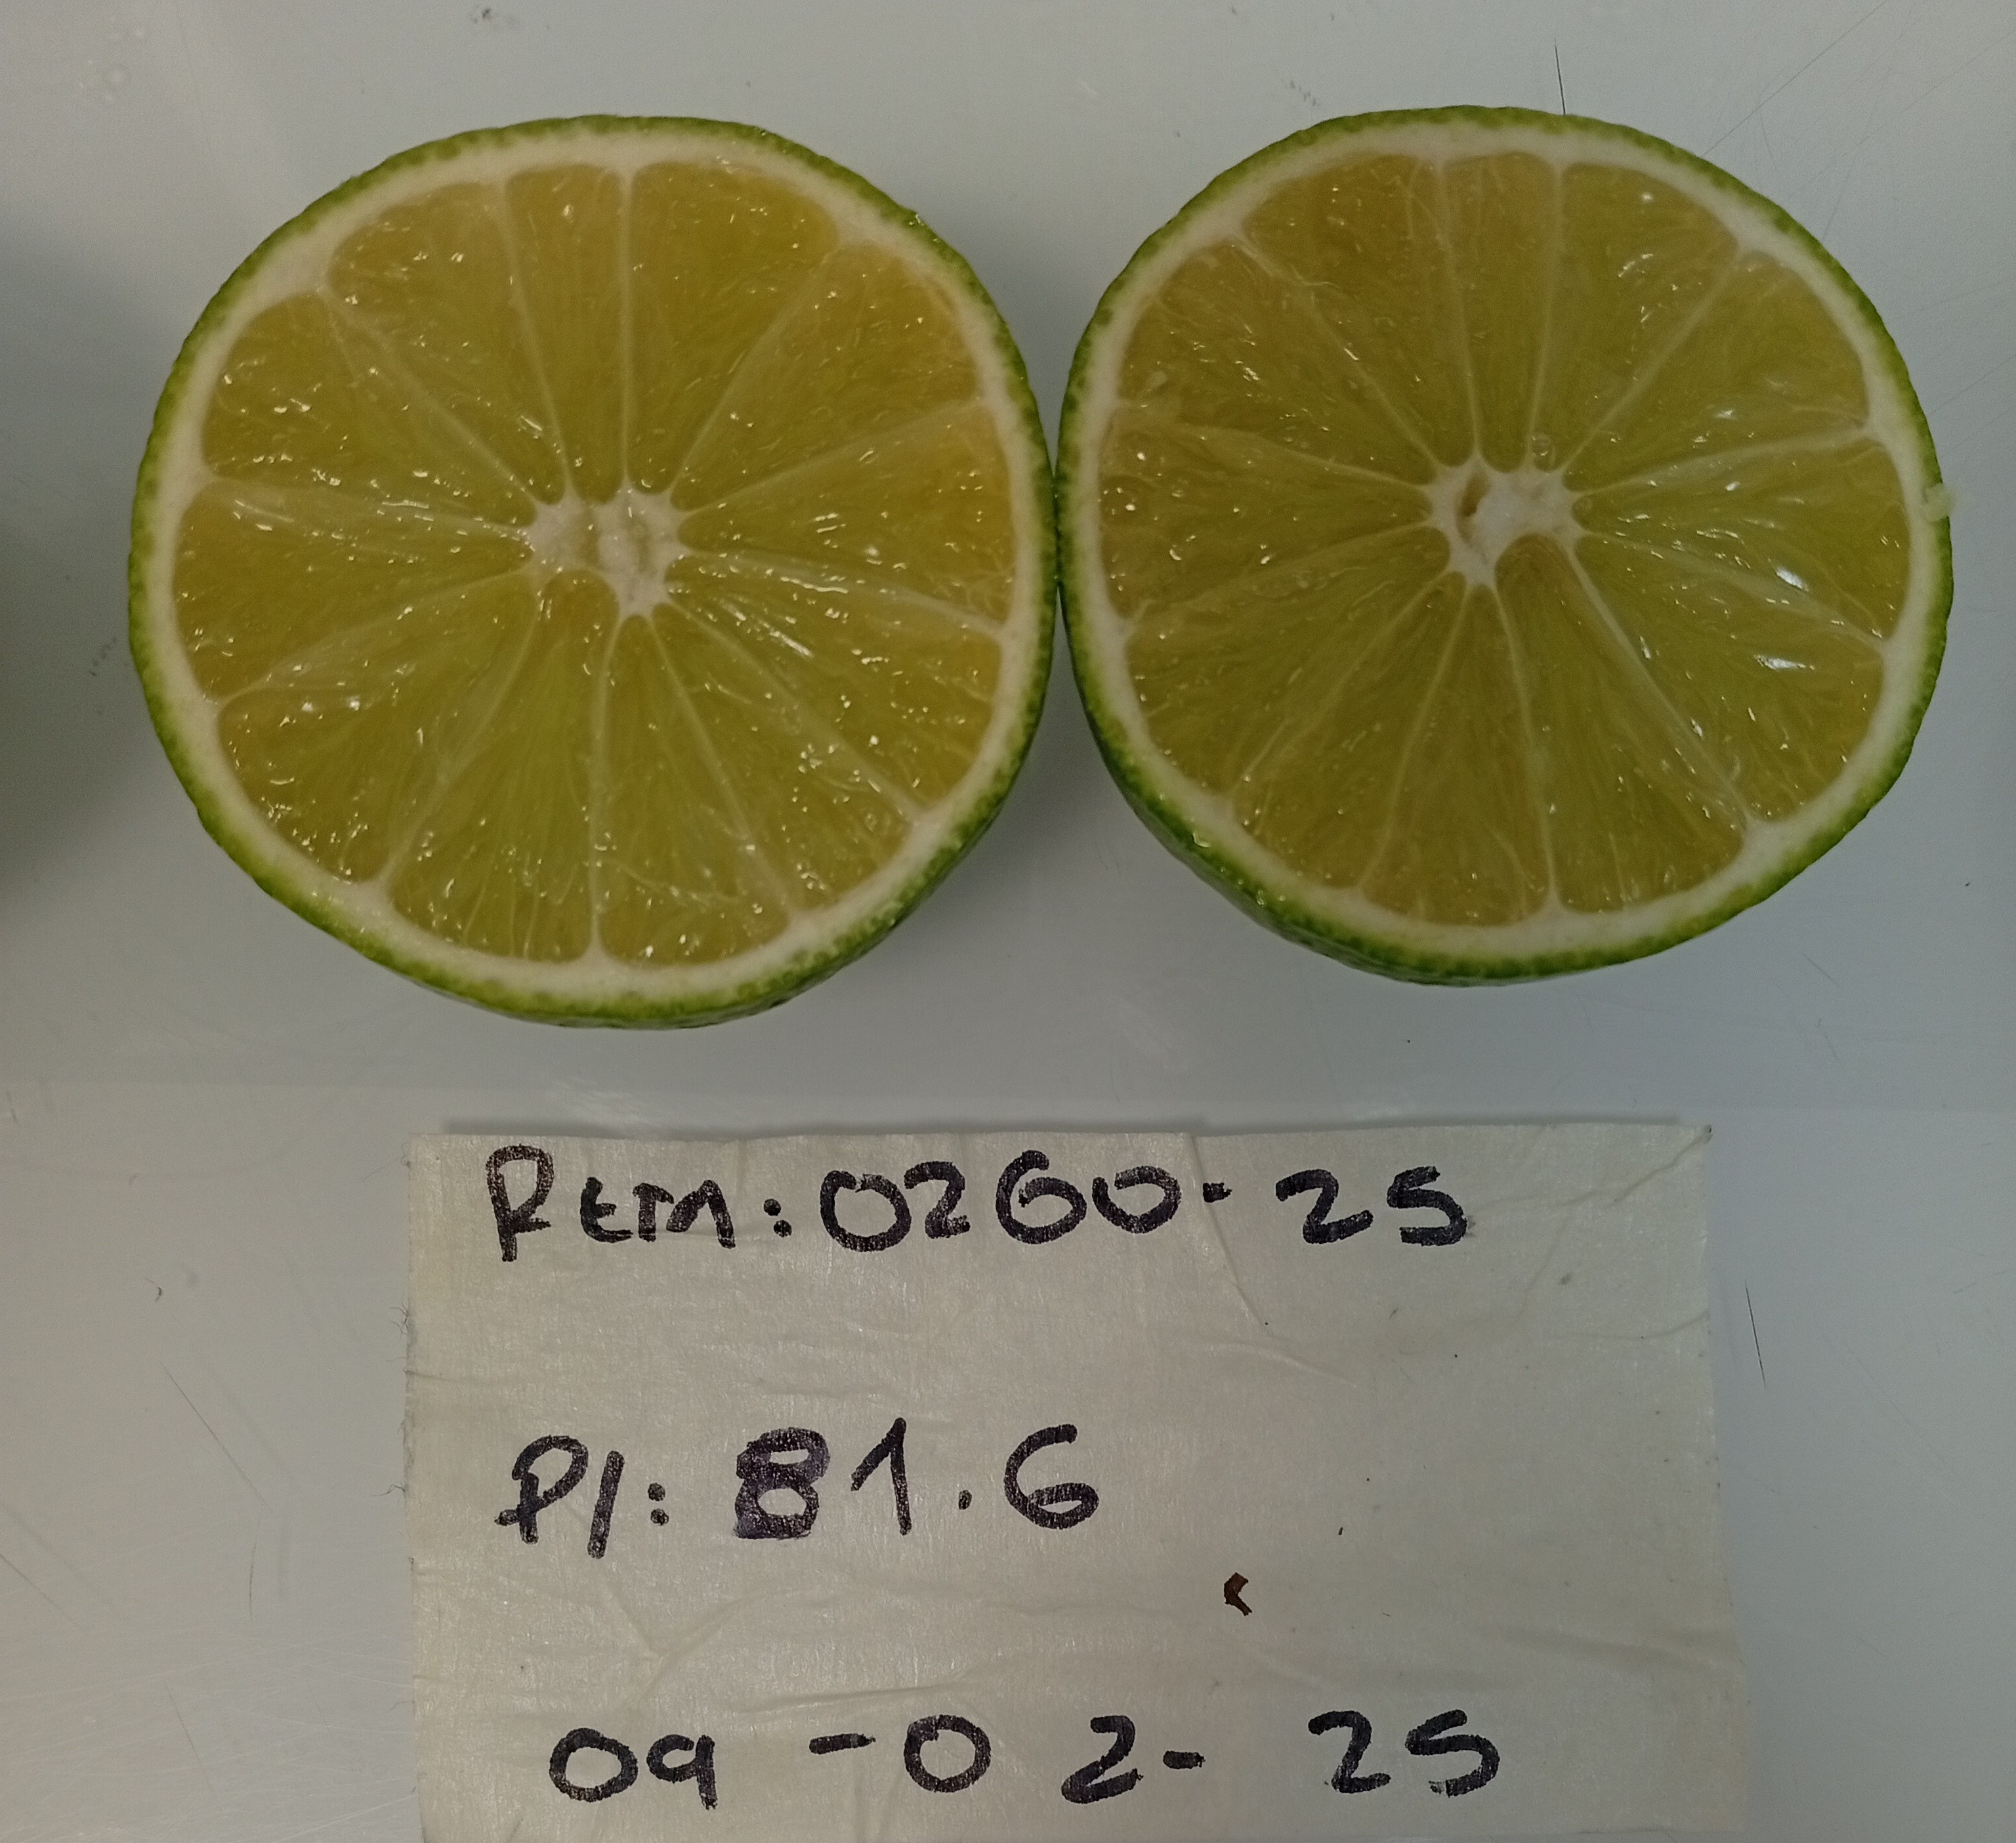 REM: 0260-25
P/: 81.6
09-02-25